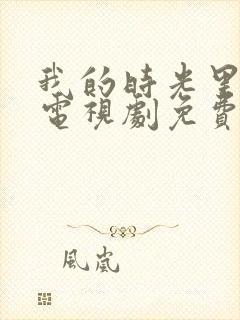 我的時光里
電視劇免費
風嵐